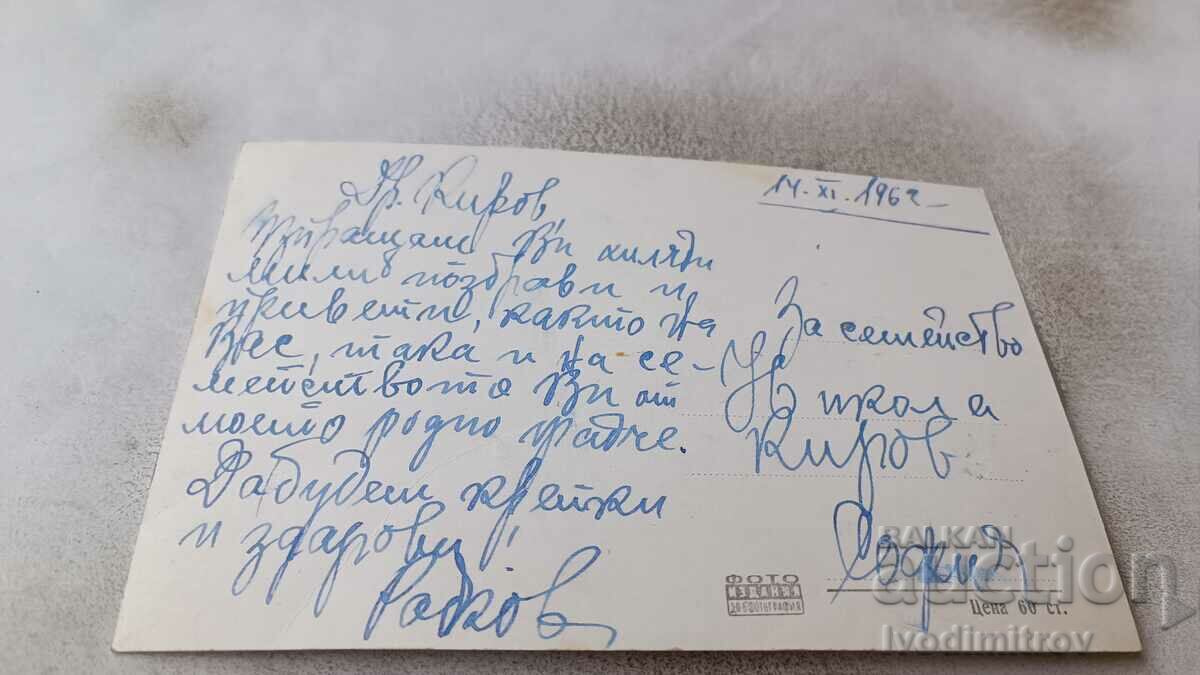 Др. Киров
Изпращам Ви хиляди
мили поздрави и
приветы, както на
Вас, така и на се-
мейството Ви от
моето родно градче.
Да бъдем крепки
и здарови!
Радков
14. XI. 1962
За семейство
Никола
Киров
София
ФОТО
ИЗДАНИЯ
Цена 60 ст.
BALKAN
auction
Ivodimitrov